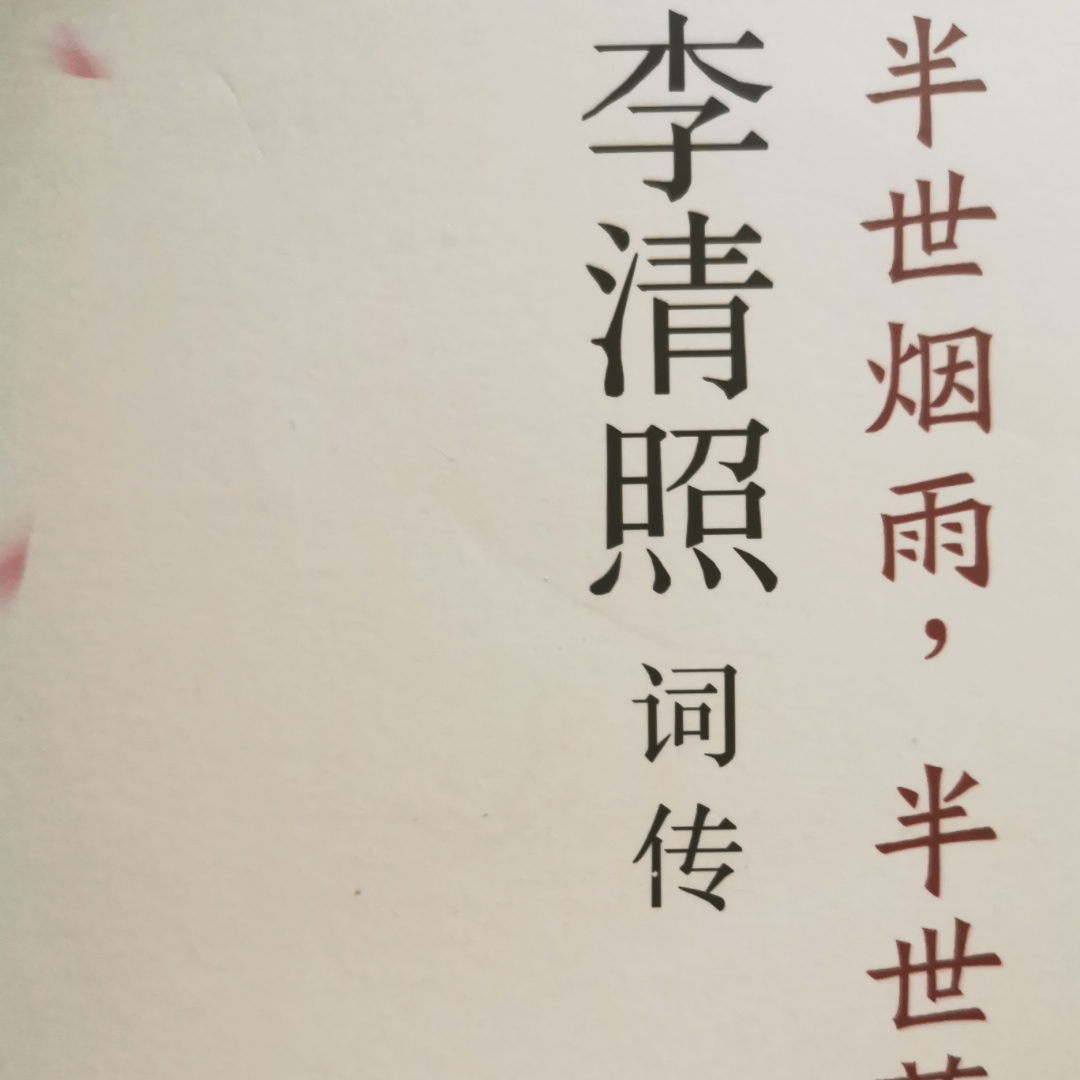 半世烟雨，半世
李清照 词传